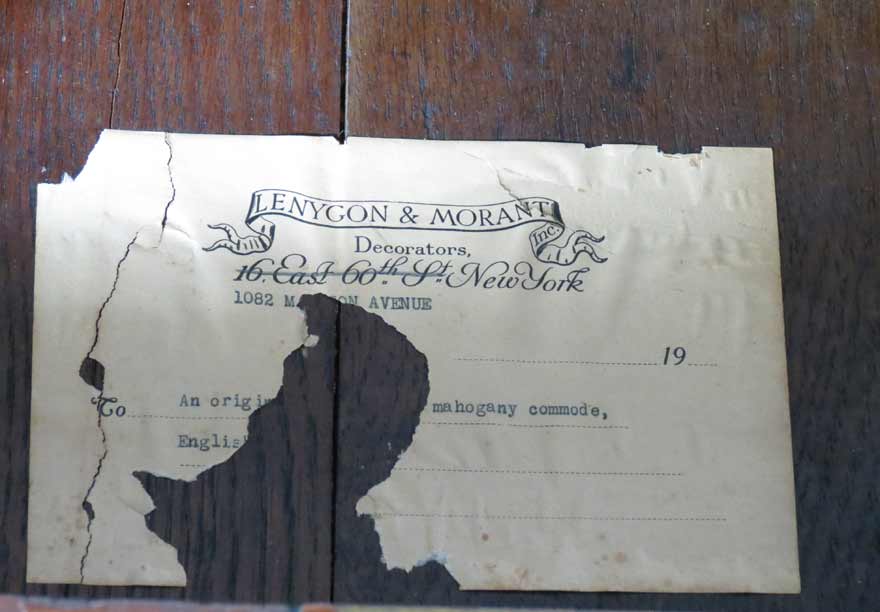 LENYGON & MORANT Inc.
Decorators,
16 East 60th St. New York
1082 AVENUE
19
To An mahogany commode,